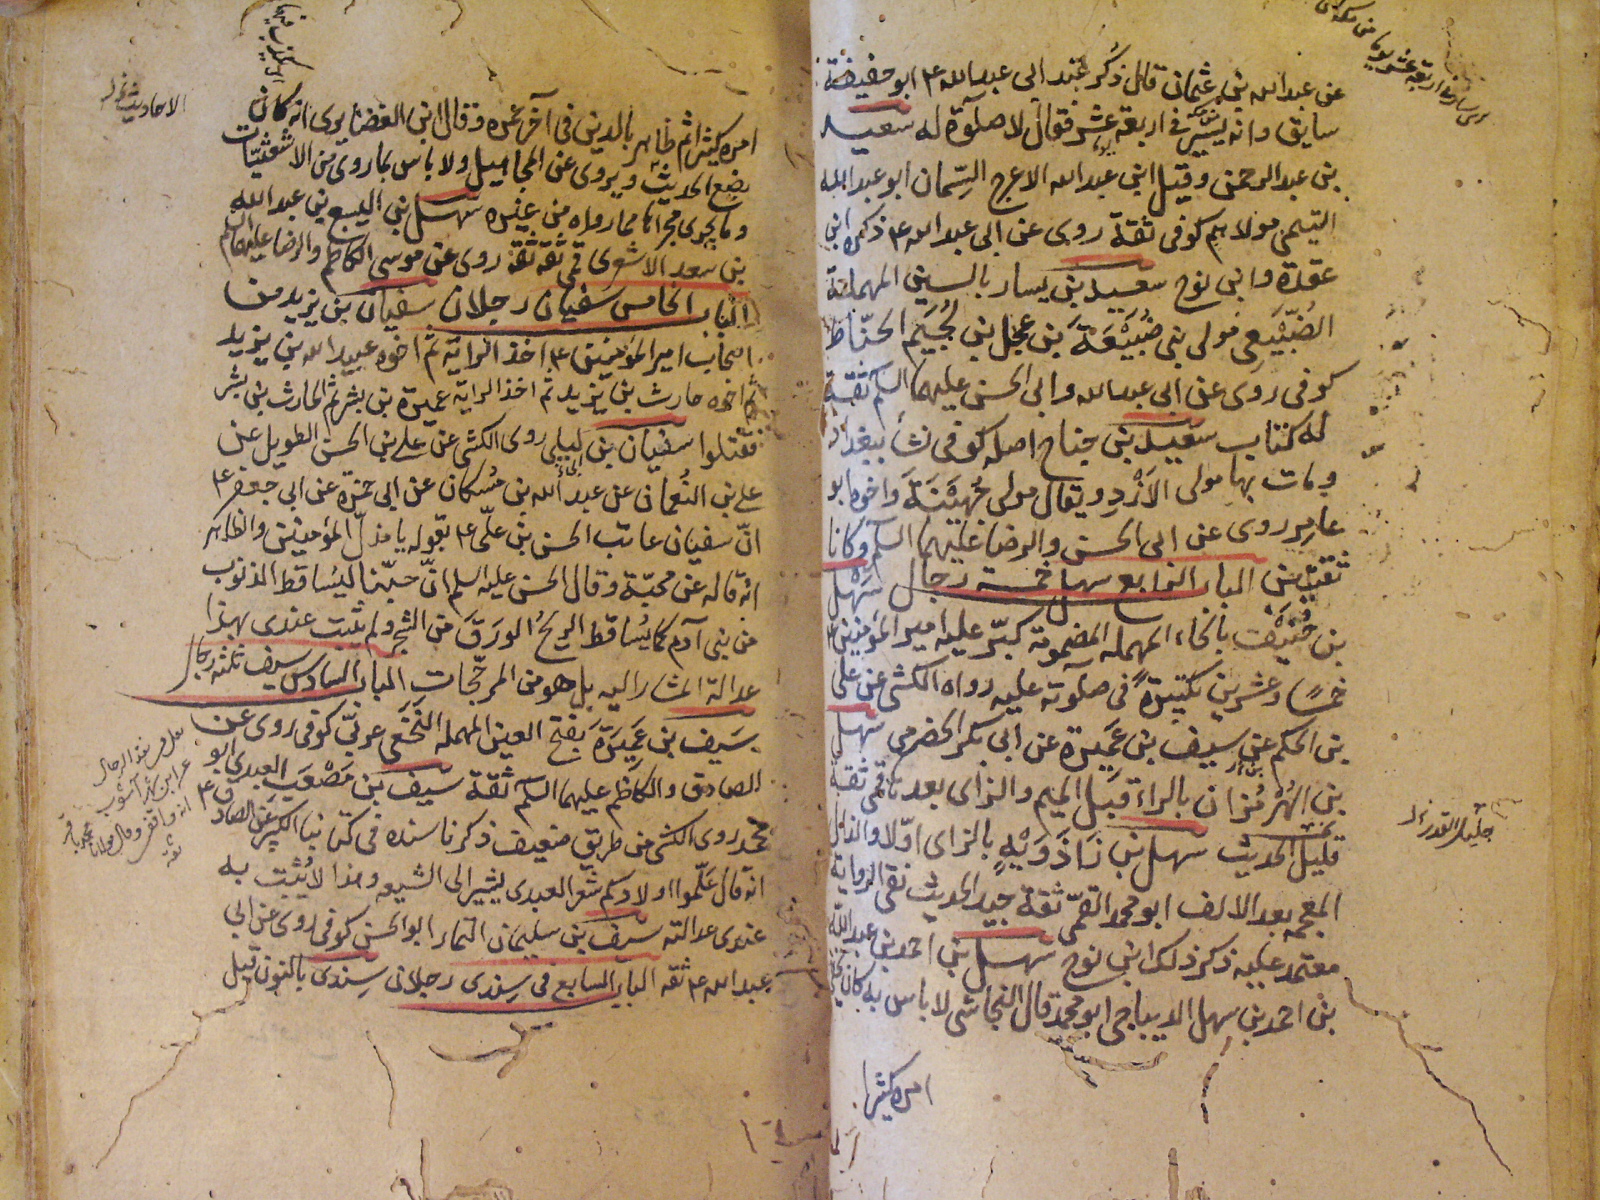 عن عبدالله بن عثمان قال ذُكر عند ابى عبدالله ع ابو حنيفة
سابق وانه يسير فى اربعة عشر فقال لا صلوة له سعيد
بن عبدالرحمن وقيل ابن عبدالله الاعرج السمّان ابو عبدالله
التيمى مولاهم كوفى ثقة روى عن ابى عبدالله ع ذكره ابن
عقدة وابن نوح سعيد بن يسار بالسين المهملة
الضُبَيعى مولى بنى ضُبَيْعَةَ بن عجل بن لُجَيم الحنّاط
كوفى روى عن ابى عبدالله وابى الحسن عليهما السلم ثقة
له كتاب سعيد بن جناح اصله كوفى نشأ ببغداد
ومات بها مولى الاَزْدِ ويقال مولى جُهَيْنَةَ واخوه ابو
عامر روى عن ابى الحسن والرضا عليهما السلم وكانا
ثقتين الباب الرابع سهل خمسة رجال سَهْل
بن حُنَيْف بالحاء المهمله المضمومة كبّر عليه امير المؤمنين ع
خمسًا وعشرين تكبيرةً فى صلوته عليه رواه الكشى عن على
بن الحكم عن سيف بن عَمِيرة عن ابى بكر الحضرمى سهل
بن الهُرْمُزان بالراء قبل الميم والزاى بعدها قمى ثقة
قليل الحديث سهل بن زَاذَوَيْهِ بالزاى اوّلا والذال
المعجمه بعد الالف ابو محمد القمّى ثقة جيد الحديث نقى الرواية
معتمد عليه ذكر ذلك ابن نوح سهل بن احمد بن عبدالله
بن احمد بن سهل الديباجى ابو محمد قال النجاشى لا باس به كان يخفى
امره كثيرا
جليل القدر
امره كثيرا ثم ظاهر بالدين فى آخر عمره وقال ابن الغضايرى انه كان
يضع الحديث ويروى عن المجاهيل ولا باس بما روى من الاشعثيّات
وما يجرى مجراها مما رواه من غيره سهل بن اليسع بن عبدالله
بن سعد الاشعرى قمى ثقه ثقة روى عن موسى الكاظم والرضا عليهما السلم
الباب الخامس سفيان رجلان سفيان بن يزيد من
اصحاب امير المؤمنين ع اخذ الراية ثم اخوه عبيدالله بن يزيد
ثم اخوه حارث بن يزيد ثم اخذ الراية عميرة بن بشر ثم الحارث بن بشر
فقتلوا سفيان بن ليلى روى الكشى عن على بن الحسن الطويل عن
على بن النُعمان عن عبدالله بن مُسكان عن ابى حمزة عن ابى جعفر ع
انّ سفيان عاتب الحسن بن علّى ع بقوله يا مذلّ المؤمنين والظاهر
انه قاله عن محبّة وقال الحسن عليه السلم انّ حبّنا ليُساقط الذنوب
من بنى آدم كما يُساقط الريحُ الورَقَ من الشجر ولم يثبت عندى بهذا
عدالة المشار اليه بل هو من المرجّحات الباب السادس سيف ثلثة رجال
سَيف بن عَمِيَرَة بفتح العين المهمله النَخَعى عربىّ كوفى روى عن
الصادق والكاظم عليهما السلم ثقة سيف بن مَصْعَب العبدى ابو
محمد روى الكشى من طريق ضعيف ذكرنا سنده فى كتابنا الكبير عن الصادق ع
انه قال علّموا اولادكم شعر العبدى يشير الى الشيعه وهذا لا يُثبت به
عندى عدالته سَيف بن سليمان التمار ابو الحسن كوفى روى عن ابى
عبدالله ع ثقه الباب السابع فى سِندى رجلان سِندى بالنون قبل
الاحاديث